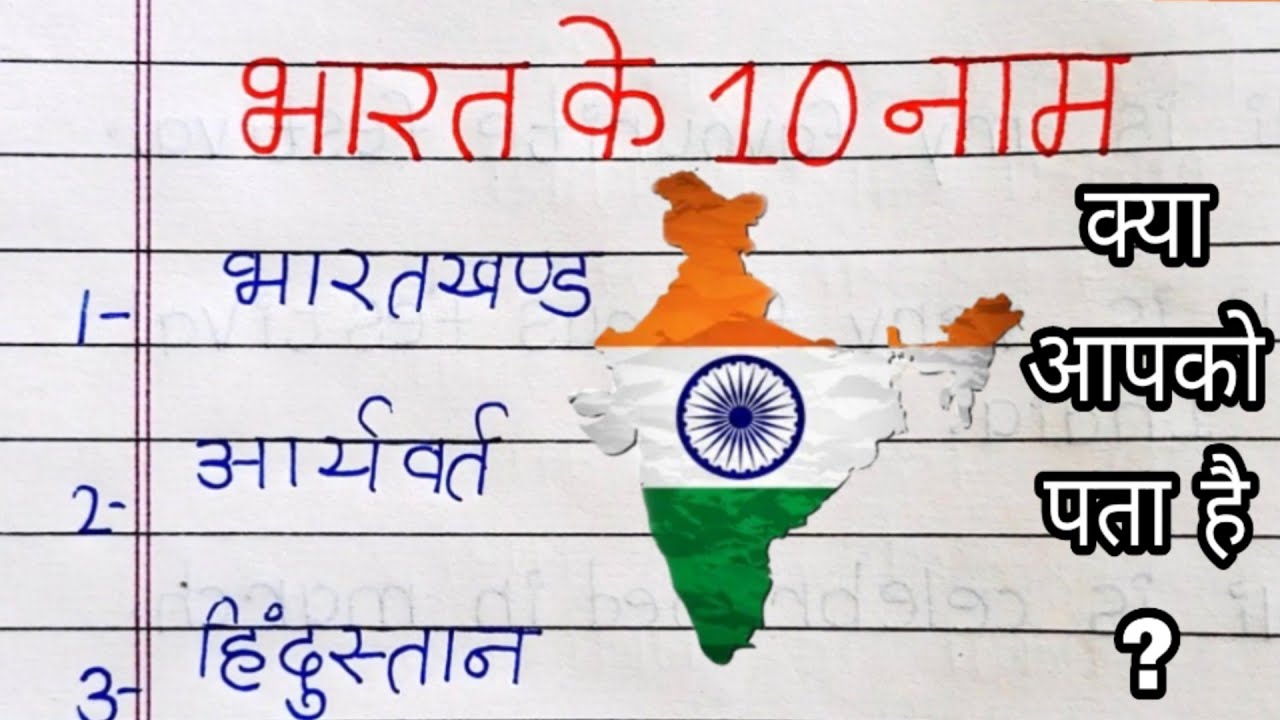 भारत के 10 नाम
1- भारतखण्ड
2- आर्यवर्त
3- हिंदुस्तान
क्या
आपको
पता है
?